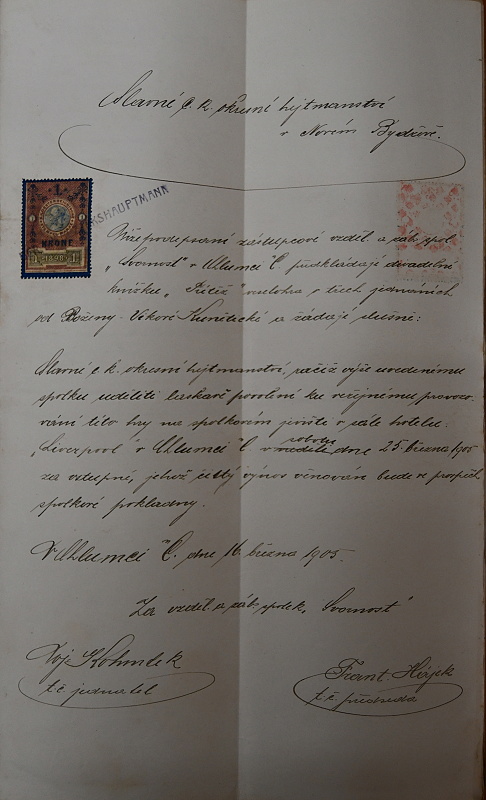 Slavné c. k. okresní hejtmanství
v Novém Bydžově.
1
KRONE
1898
KSHAUPTMANN
Níže podepsaní zástupcové vzděl. a záb. spol.
„Svornost" v Chlumci C. předkládají divadelní
knížku „Přítěž" veselohra o třech jednáních
od Boženy Vikové Kunětické a žádají slušně:
Slavné c. k. okresní hejtmanství, račiž výše uvedenému
spolku uděliti laskavě povolení ku veřejnému provozo-
vání této hry na spolkovém jevišti v sále hotelu:
sobotu
„Liverpool" v Chlumci C. v neděli dne 25. března 1905
za vstupné, jehož čistý výnos věnován bude ve prospěch
spolkové pokladny.
V Chlumci C. dne 16. března 1905.
Za vzděl. a záb. spolek „Svornost"
t. č. jednatel
Frant. Hájek
t. č. předseda